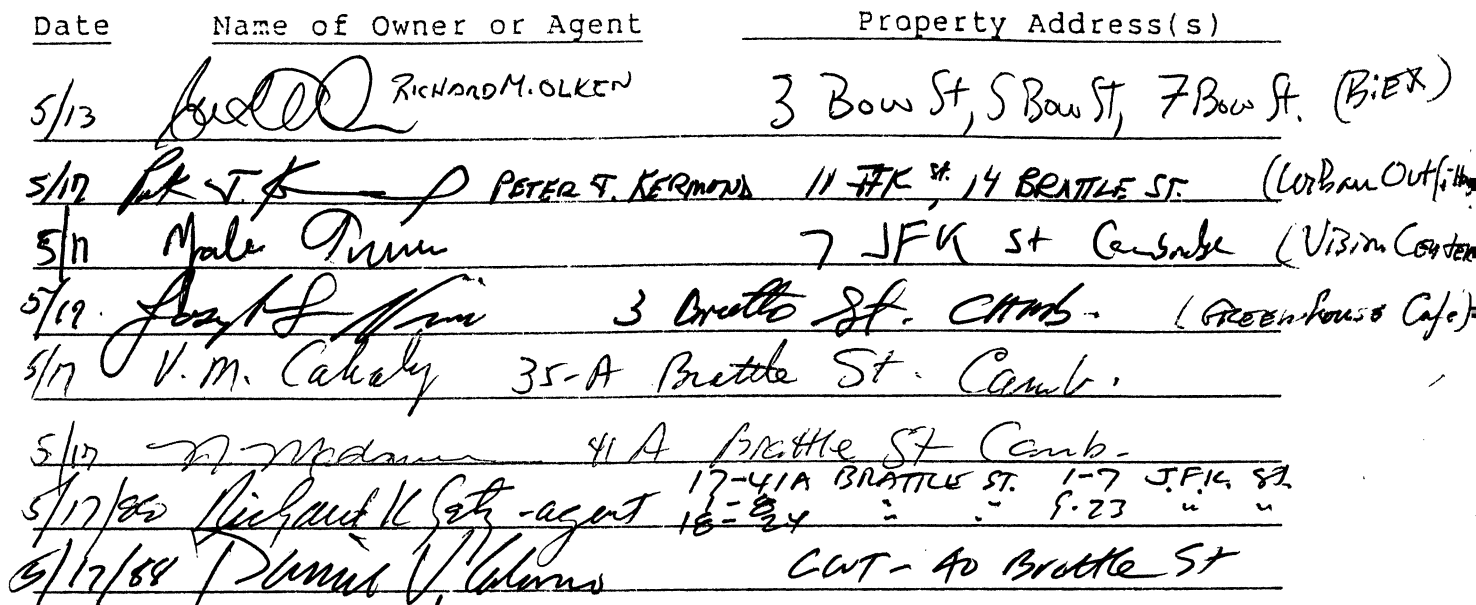 Date Name of Owner or Agent Property Address(s)
5/13 RICHARD M. OLKEN 3 Bow St, 5 Bow St, 7 Bow St. (BiEX)
5/17 PETER T. KERMOND 11 JFK St., 14 BRATTLE ST. (Urban Outfitters
5/17 7 JFK St Cambridge (Vision Center
5/17 Joseph 3 Brattle St. CAMB. (GREENHOUSE Cafe)
5/17 V. M. Cahaly 35-A Brattle St. Camb.
5/17 41 A Brattle St Camb.
5/17/88 Richard K Getz - agent 17-41A BRATTLE ST. 1-7 J.F.K. St.
1-8 " " 9-23 " "
18-24
5/17/88 40 Brattle St